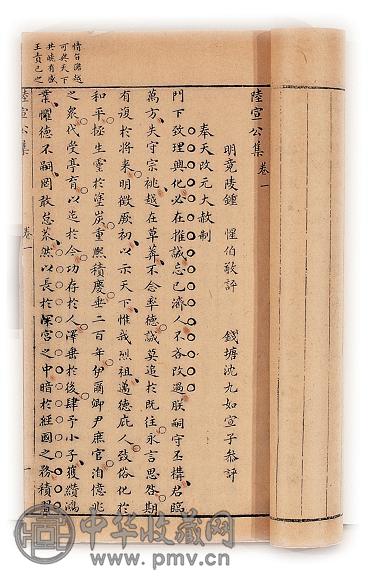 陸宣公集卷一
明竟陵鍾 惺伯敬評 錢塘沈九如宣子參評
奉天改元大赦制
門下致理興化必在推誠忘己濟人不吝改過朕嗣守丕構君臨
萬方失守宗祧越在草莽不念率德誠莫追於既往永言思咎期
有復於將來明徵厥初以示天下惟我烈祖邁德庇人致俗化於
和平拯生靈於塗炭重熙積慶垂二百年伊爾卿尹庶官洎億兆
之衆代受亭育以迄於今功存於人澤垂於後肆予小子獲纘鴻
業懼德不嗣罔敢怠荒然以長於深宮之中暗於經國之務積習
可與天下
王責己之
陸宣公集 卷一 一
中华收藏网
www.pmv.cn